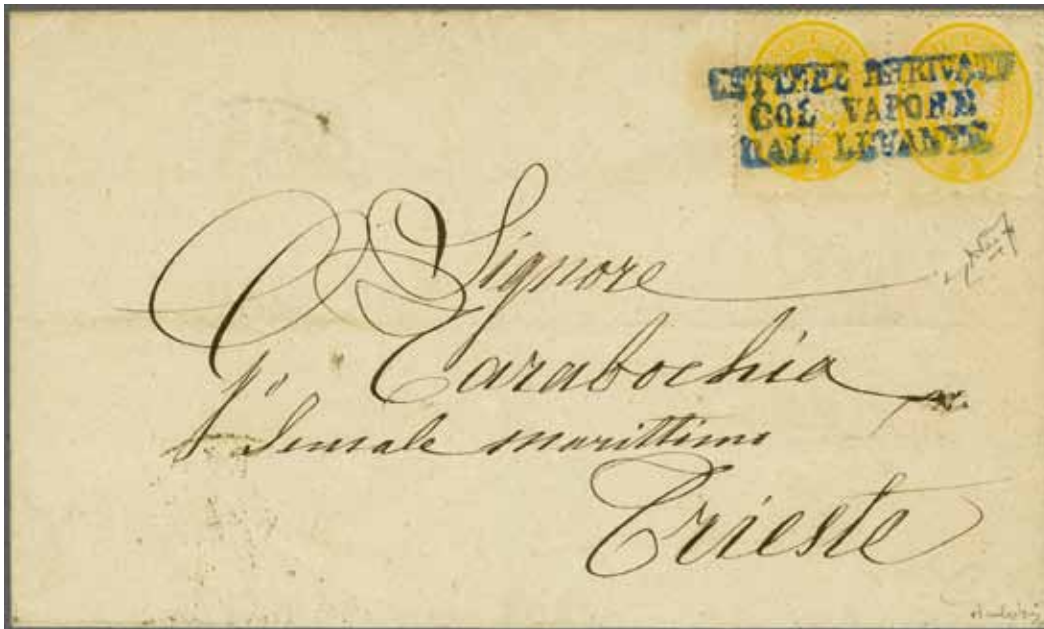 LETTERE ARRIVATE
COL VAPORE
DAL LEVANTE
Signore
Carabochia
Sensale marittimo
Trieste